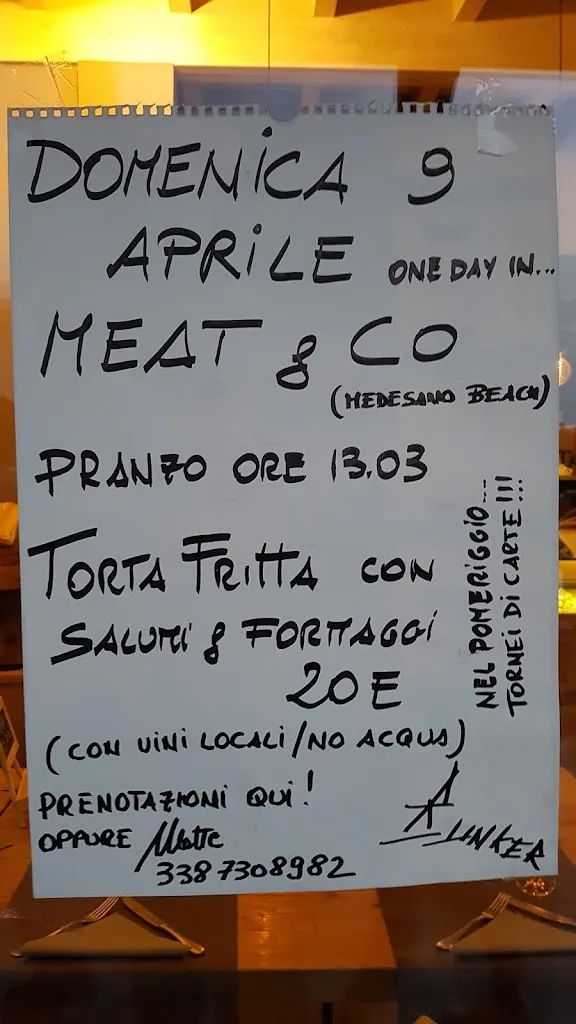 DOMENICA 9
APRILE ONE DAY IN...
MEAT & CO
(MEDESANO BEACH)
PRANZO ORE 13.03
TORTA FRITTA CON
SALUMI & FORMAGGI
20 E
(CON VINI LOCALI/NO ACQUA)
PRENOTAZIONI QUI!
OPPURE Matte
338 7308982
NEL POMERIGGIO...
TORNEI DI CARTE!!!
LINKER